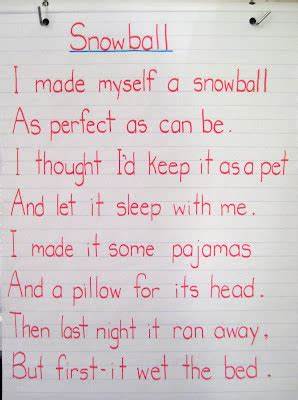 Snowball
I made myself a snowball
As perfect as can be.
I thought I'd keep it as a pet
And let it sleep with me.
I made it some pajamas
And a pillow for its head.
Then last night it ran away,
But first-it wet the bed.